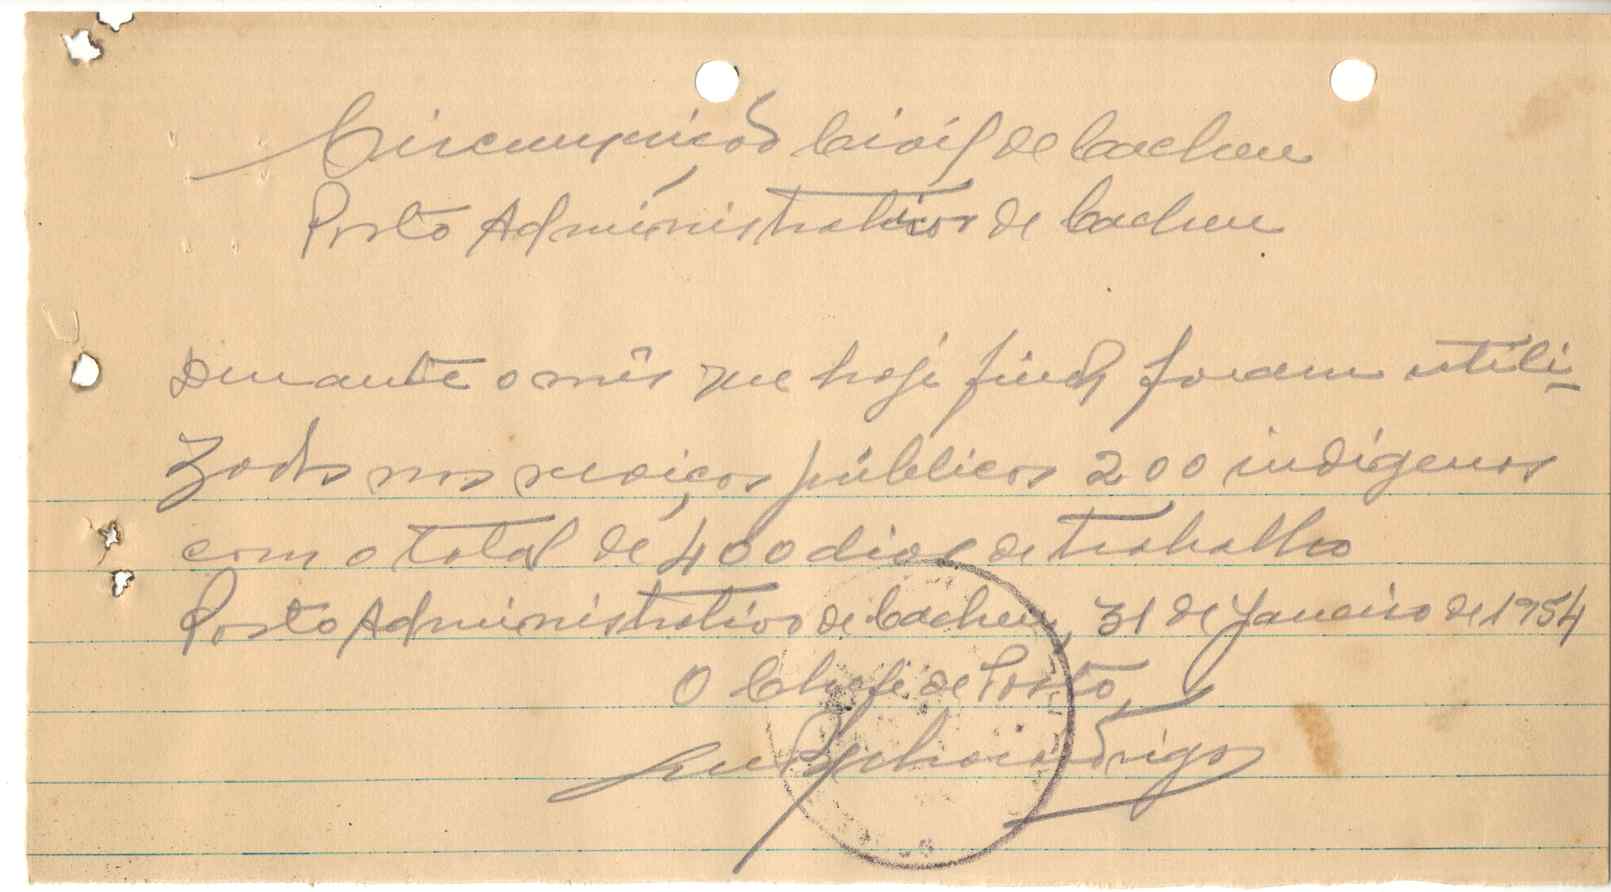 Circunscrição Civil de Cacheu
Posto Administrativo de Cacheu
Durante o mês que hoje finda foram utili-
zados nos serviços públicos 200 indígenas
com o total de 400 dias de trabalho
Posto Administrativo de Cacheu, 31 de Janeiro de 1954
O Chefe de Posto,